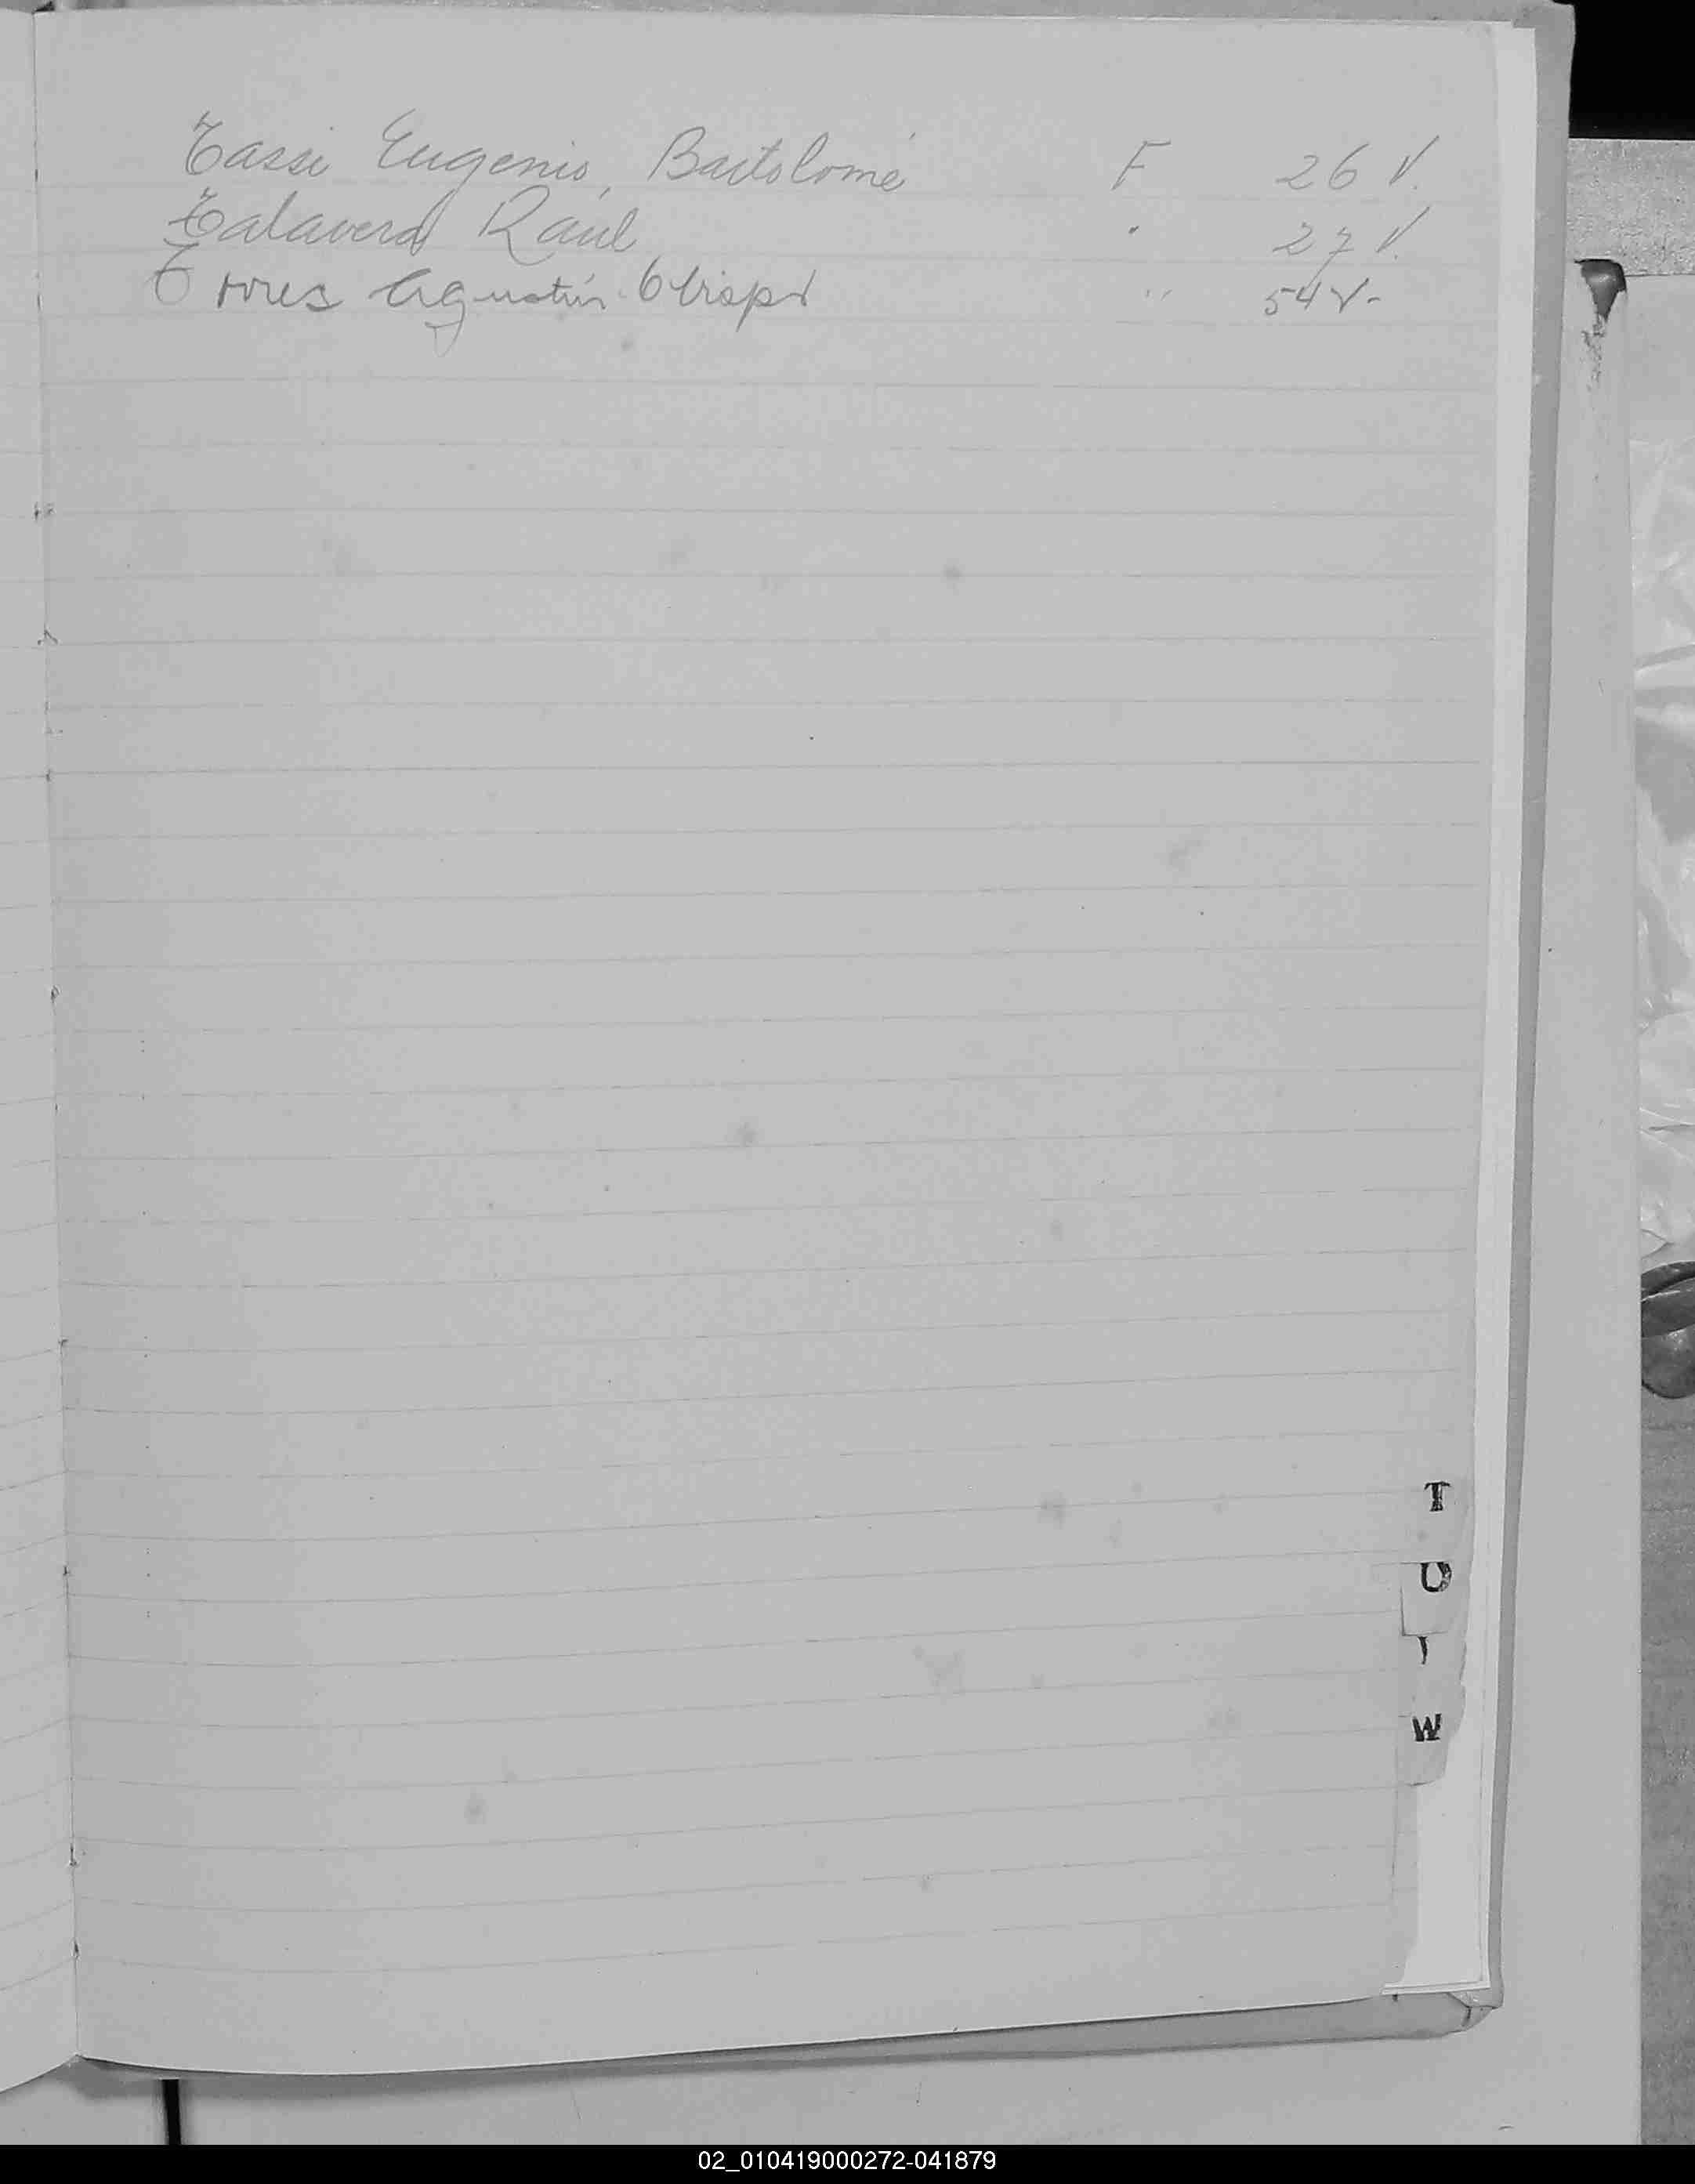 Tassi Eugenio, Bartolomé F 26 V.
Talavera Raúl " 27 V.
Torres Agustín Crispo " 54 V-
T
U
W
02_010419000272-041879